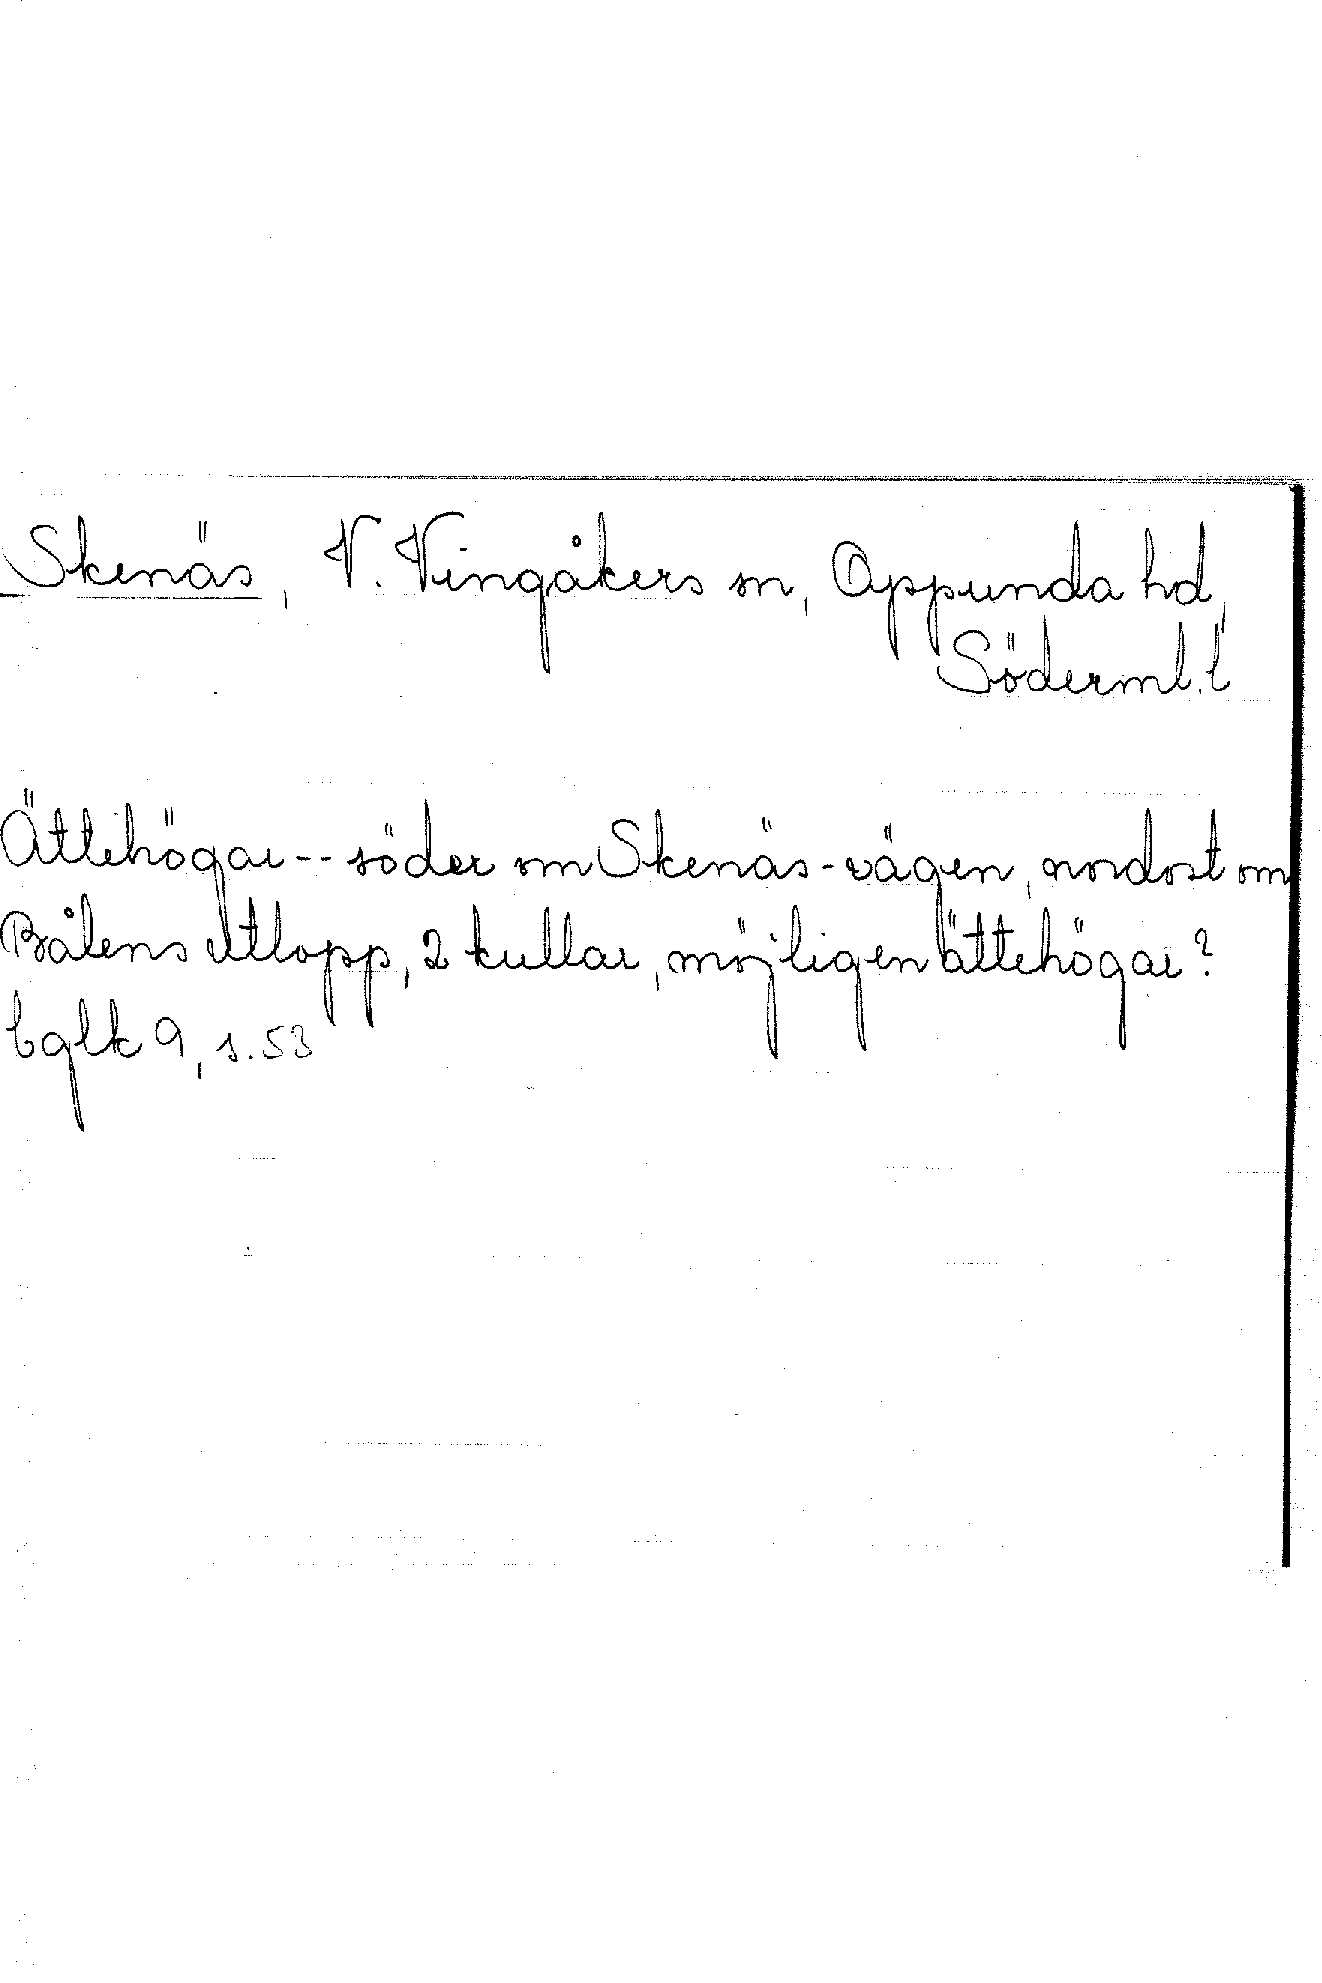 Skenäs, V. Vingåkers sn, Oppunda hd,
Söderml. l
Ättehögar -- söder om Skenäs-vägen, nordost om
Bålens utlopp, 2 kullar, möjligen ättehögar?
bglk 9, s. 53